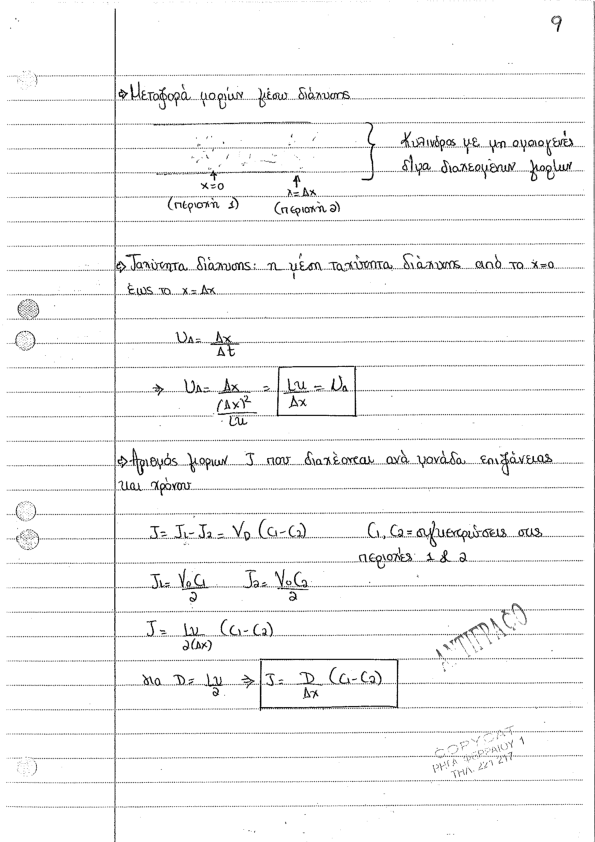 9
⇒ Μεταφορά μορίων μέσω διάχυσης
Κύλινδρος με μη ομοιογενές
δ/μα διαχεομένων μορίων
x=0
x=Δx
(περιοχή 1)
(περιοχή 2)
⇒ Ταχύτητα διάχυσης: η μέση ταχύτητα διάχυσης από το x=0
έως το x=Δx
UΔ = Δx/Δt
⇒ UΔ = Δx/((Δx)²/Lu) = Lu/Δx = UΔ
⇒ Αριθμός μορίων J που διαχέονται ανά μονάδα επιφάνειας
και χρόνου
J = J₁-J₂ = V_D (C₁-C₂)
C₁, C₂ = συγκεντρώσεις στις
περιοχές 1 & 2
J₁= V₀C₁/2 J₂= V₀C₂/2
J = Lu/2(Δx) (C₁-C₂)
για D = Lu/2 ⇒ J = D/Δx (C₁-C₂)
ΑΝΤΙΓΡΑΦΟ
COPYCAT
ΡΗΓΑ ΦΕΡΡΑΙΟΥ 1
ΤΗΛ. 221 217